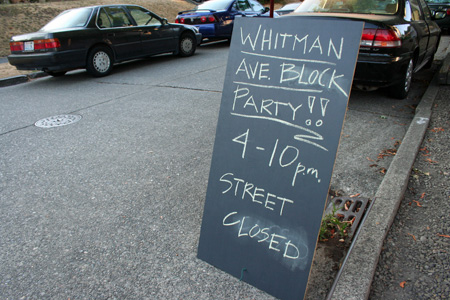 WHITMAN
AVE. BLOCK
PARTY!!
4-10 p.m.
STREET
CLOSED